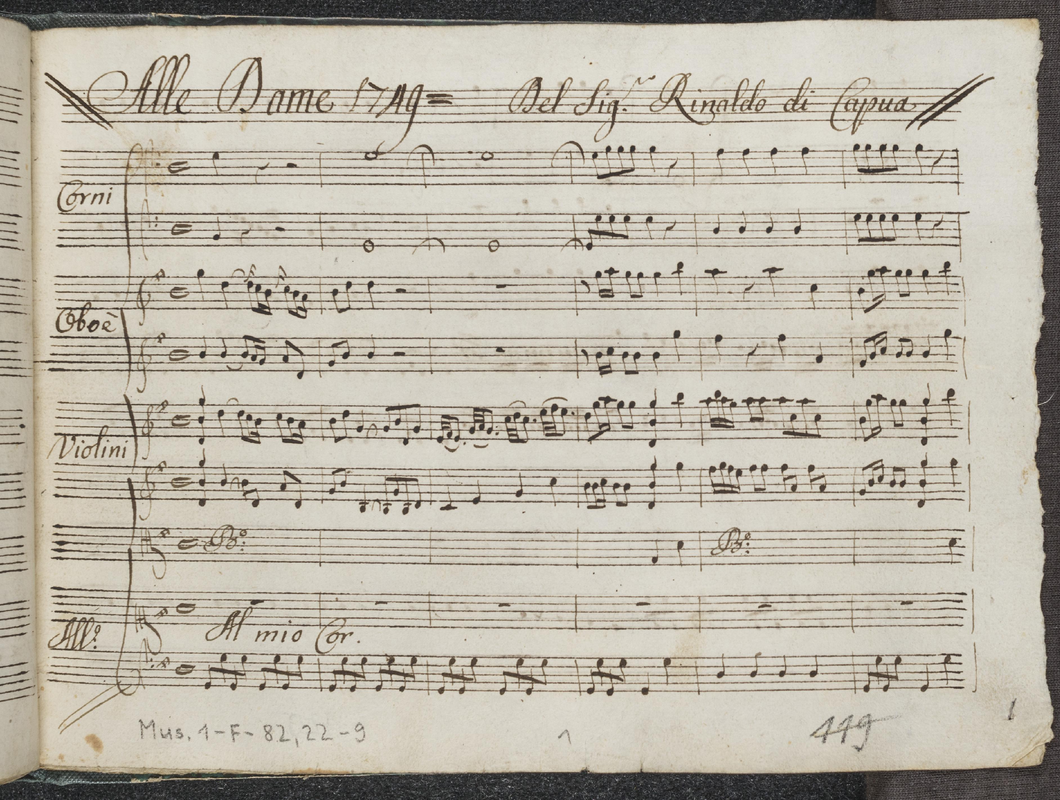 Alle Dame 1749= Del Sig.r Rinaldo di Capua
Corni
Oboè
Violini
B.o B.o
All.o Al mio Cor.
Mus. 1-F-82,22-9 1 449 1